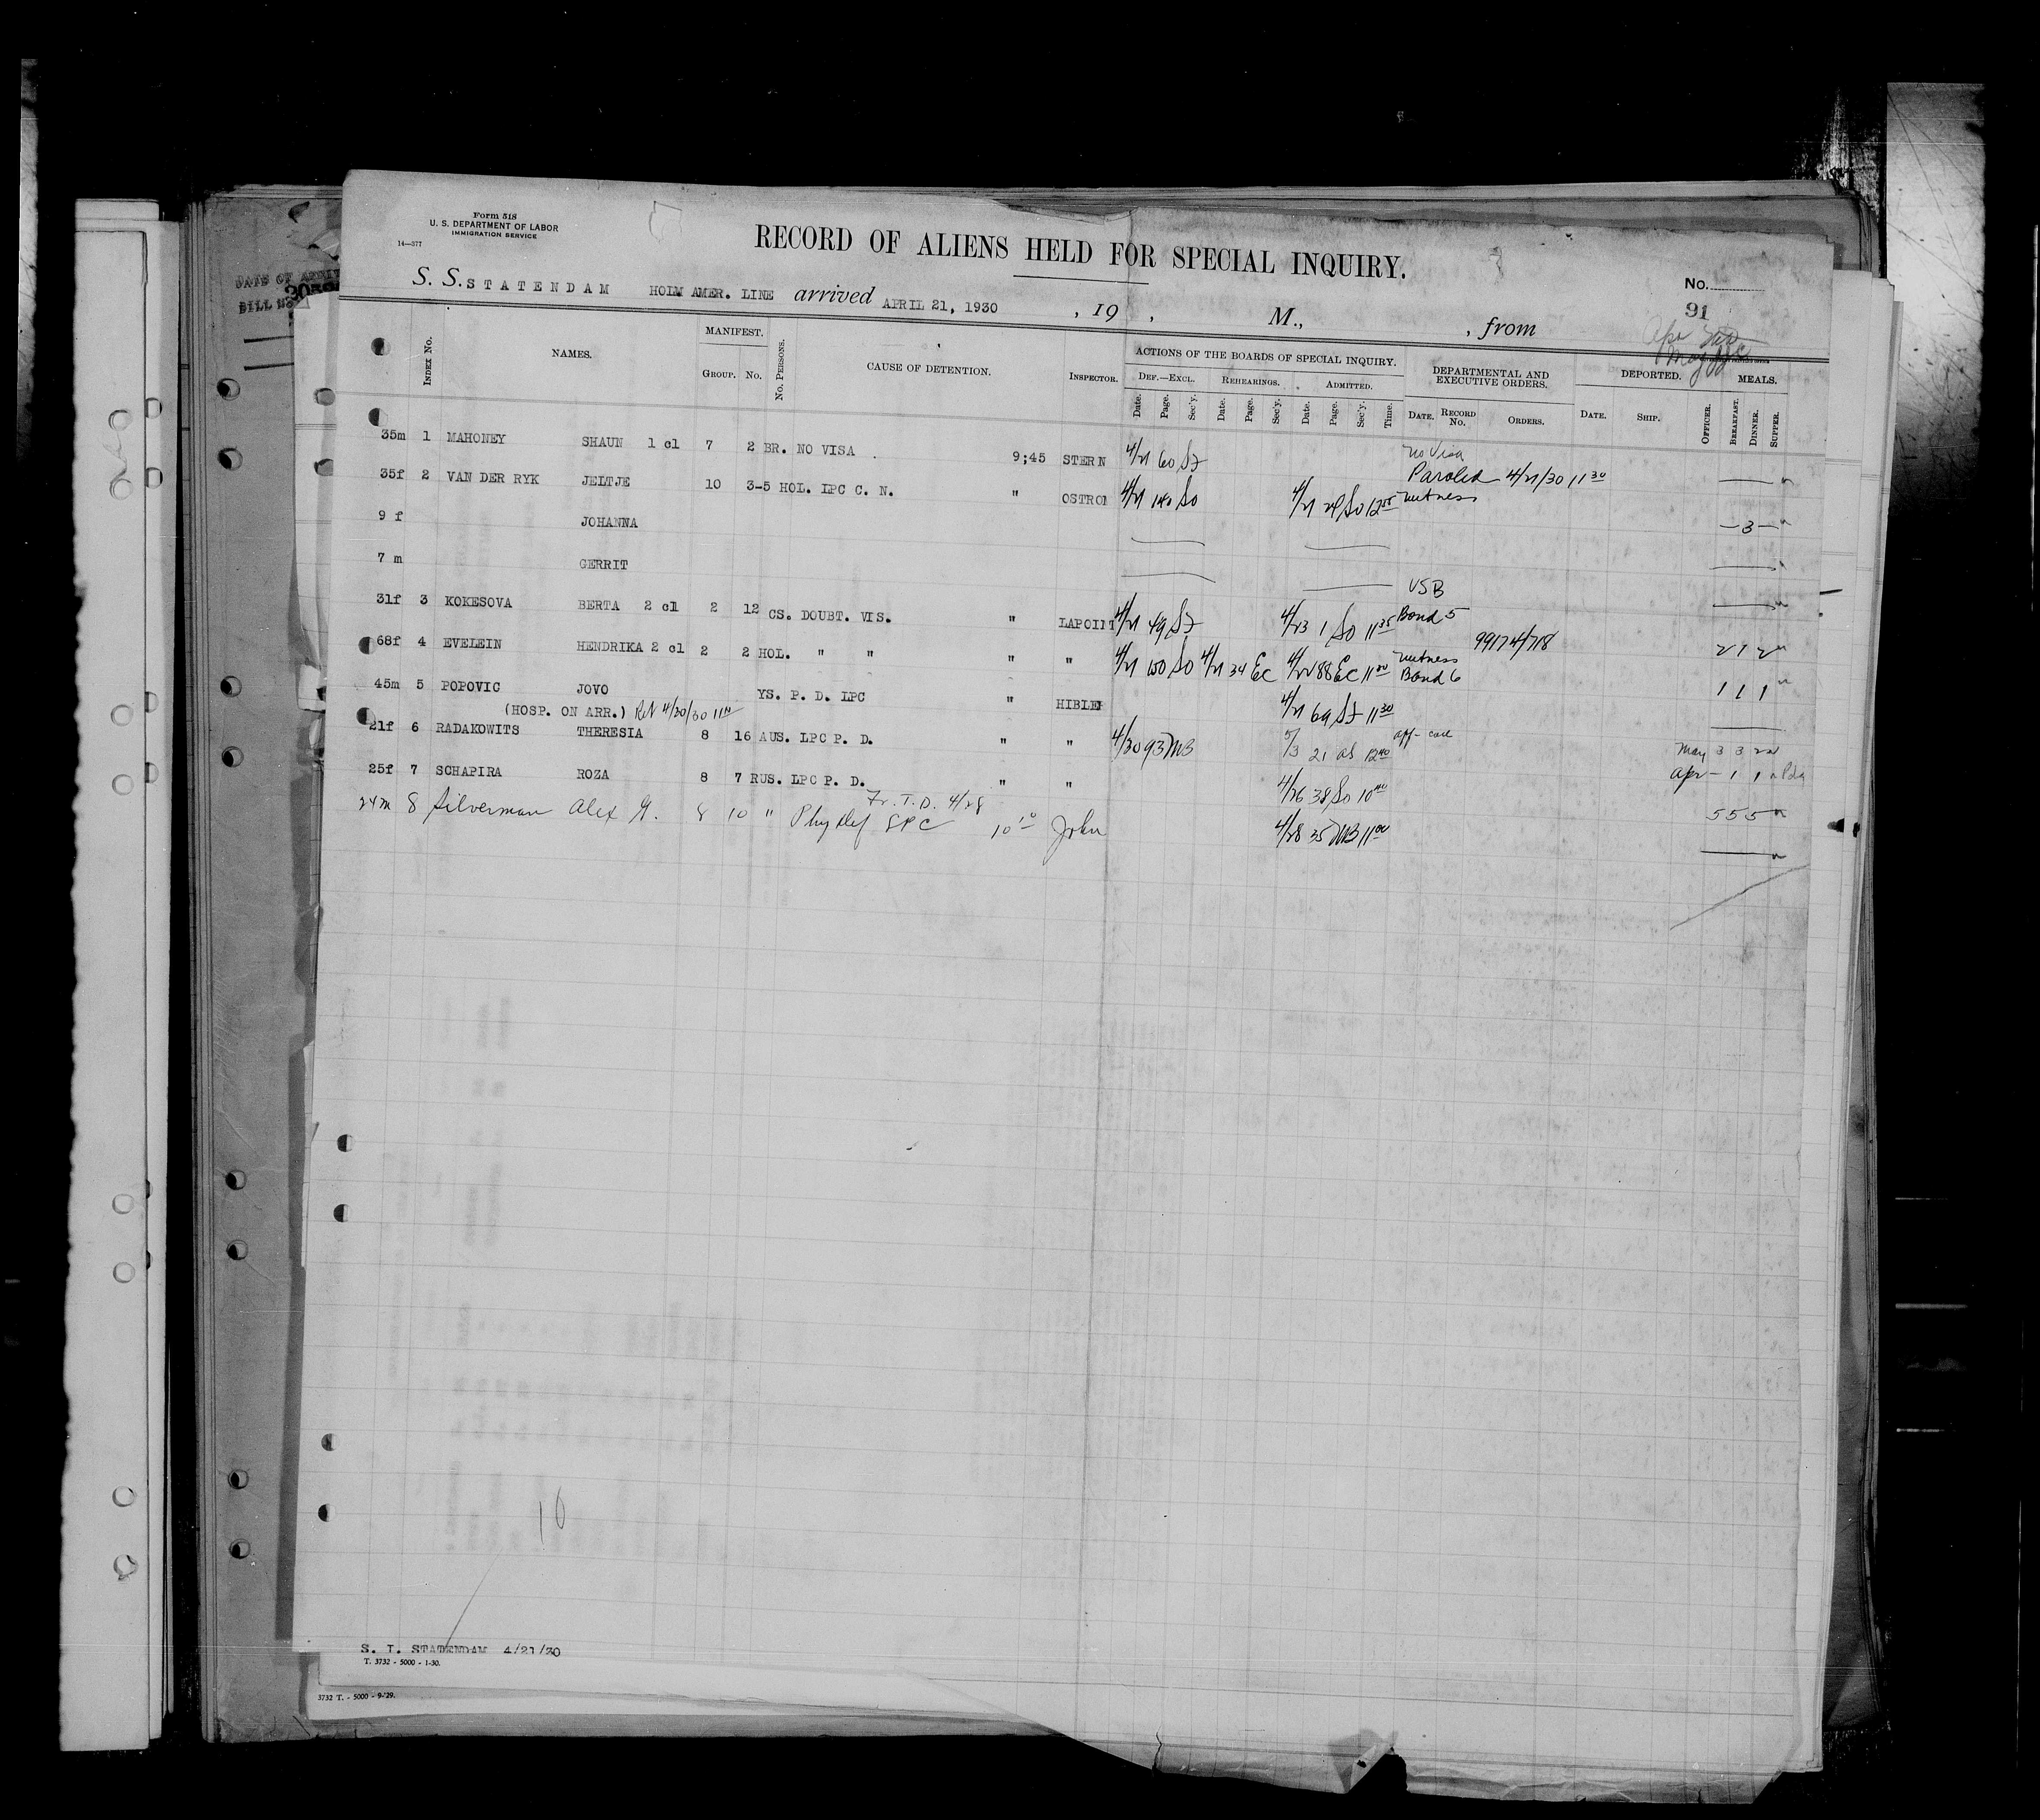 Form 518
U. S. DEPARTMENT OF LABOR
IMMIGRATION SERVICE
14—377
RECORD OF ALIENS HELD FOR SPECIAL INQUIRY.
No.
91
S. S. STATENDAM HOLM AMER. LINE arrived APRIL 21, 1930 , 19 , M., , from
DATE OF
BILL
INDEX No. NAMES. MANIFEST. GROUP. No. No. PERSONS. CAUSE OF DETENTION. INSPECTOR.
ACTIONS OF THE BOARDS OF SPECIAL INQUIRY. DEPARTMENTAL AND EXECUTIVE ORDERS. DEPORTED. MEALS.
DEF.—EXCL. REHEARINGS. ADMITTED.
Date. Page. Sec'y. Date. Page. Sec'y. Date. Page. Sec'y. Time. DATE. RECORD No. ORDERS. DATE. SHIP. OFFICER. BREAKFAST. DINNER. SUPPER.
no Visa
35m 1 MAHONEY SHAUN 1 cl 7 2 BR. NO VISA 9;45 STERN 4/21 60 Paroled 4/21/30 11 30
35f 2 VAN DER RYK JELTJE 10 3-5 HOL. LPC C. N. " OSTROI 4/21 140 So 4/21 So 12 witness
9 f JOHANNA — 3 —
7 m GERRIT
VSB
31f 3 KOKESOVA BERTA 2 cl 2 12 CS. DOUBT. VIS. " LAPOINT 4/21 49 4/23 1 So 11 35 Bond 5
99174/718
68f 4 EVELEIN HENDRIKA 2 cl 2 2 HOL. " " " " 4/21 So 4/21 34 EC 4/22 88 EC 11 witness Bond 6 2 1 2
45m 5 POPOVIC JOVO YS. P. D. LPC " HIBLER 4/21 69 11 30 1 1 1
(HOSP. ON ARR.) 4/30/30
21f 6 RADAKOWITS THERESIA 8 16 AUS. LPC P. D. " " 4/30 93 MB 5/3 21 12 May 3 3 2
25f 7 SCHAPIRA ROZA 8 7 RUS. LPC P. D. " " 4/26 38 So 10 Apr — 1 1
Fr. T. D. 4/28
24m 8 Silverman Alex 8 10 " Phy Def LPC 10 10 John 4/28 35 MB 11 00 5 5 5
10
S. I. STATENDAM 4/21/30
T. 3732 - 5000 - 1-30.
3732 T. - 5000 - 9-'29.